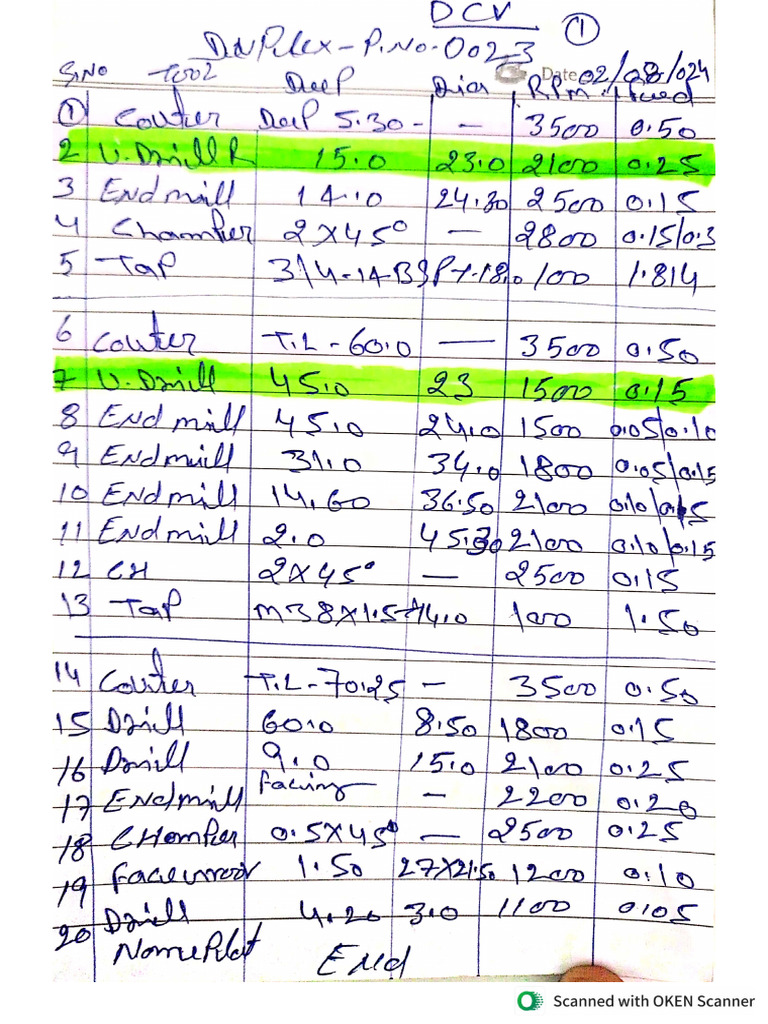 DCV
①
Duplex-P.No-0023
Date 02/08/024
S.No Tool Deep Dia RPM Feed
① Couter Deep 5.30 - — 3500 0.50
2 U.Drill R 15.0 23.0 2100 0.25
3 Endmill 14.0 24.30 2500 0.15
4 Chamfer 2X45° — 2800 0.15/0.3
5 Tap 3/4-14-BSPT-18.0 100 1.814
6 Couter T.L-60.0 — 3500 0.50
7 U.Drill 45.0 23 1500 0.15
8 End mill 45.0 24.0 1500 0.05/0.10
9 Endmill 31.0 34.0 1800 0.05/0.15
10 Endmill 14.60 36.50 2100 0.10/0.15
11 Endmill 2.0 45.30 2100 0.10/0.15
12 CH 2X45° — 2500 0.15
13 Tap M38X1.5 14.0 100 1.50
14 Couter T.L-70.25 — 3500 0.50
15 Drill 60.0 8.50 1800 0.15
16 Drill 9.0 15.0 2100 0.25
17 Endmill Facing — 2200 0.20
18 CHamfer 0.5X45° — 2500 0.25
19 1.50 27X21.50 1200 0.10
20 Drill 4.20 3.0 1100 0.05
NamePlat
End
Scanned with OKEN Scanner